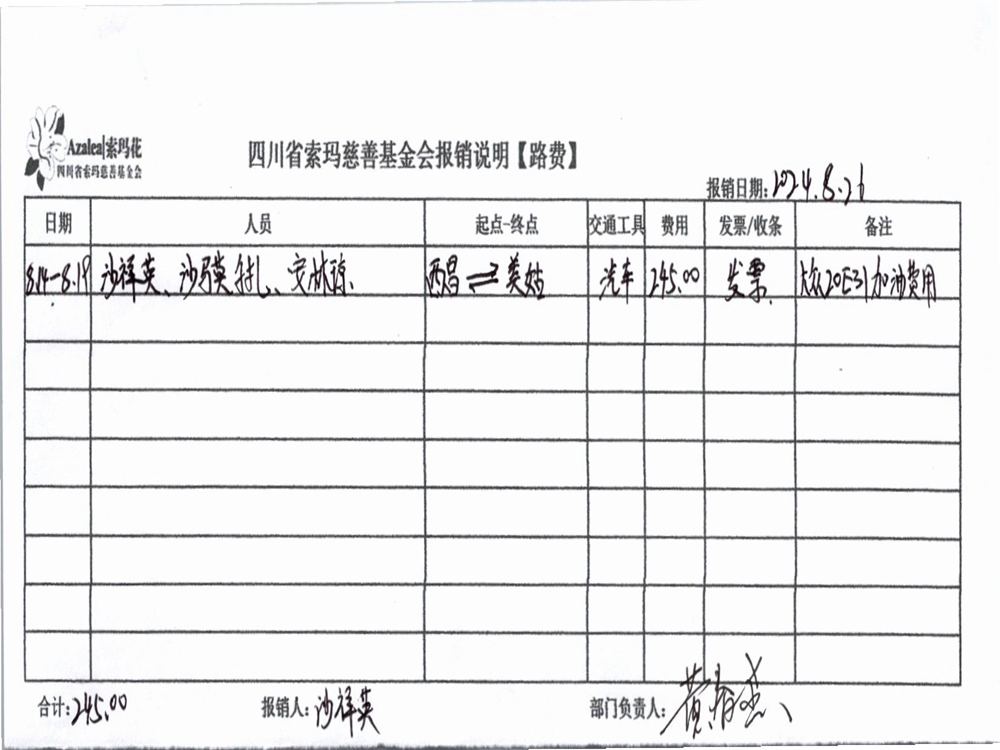 Azalea|索玛花
四川省索玛慈善基金会
四川省索玛慈善基金会报销说明【路费】
报销日期:2024.8.26
日期 人员 起点-终点 交通工具 费用 发票/收条 备注
8.14-8.19 沙祥英、沙马英 西昌⇌美姑 汽车 245.00 发票 加油费用
合计:245.00 报销人:沙祥英 部门负责人:黄